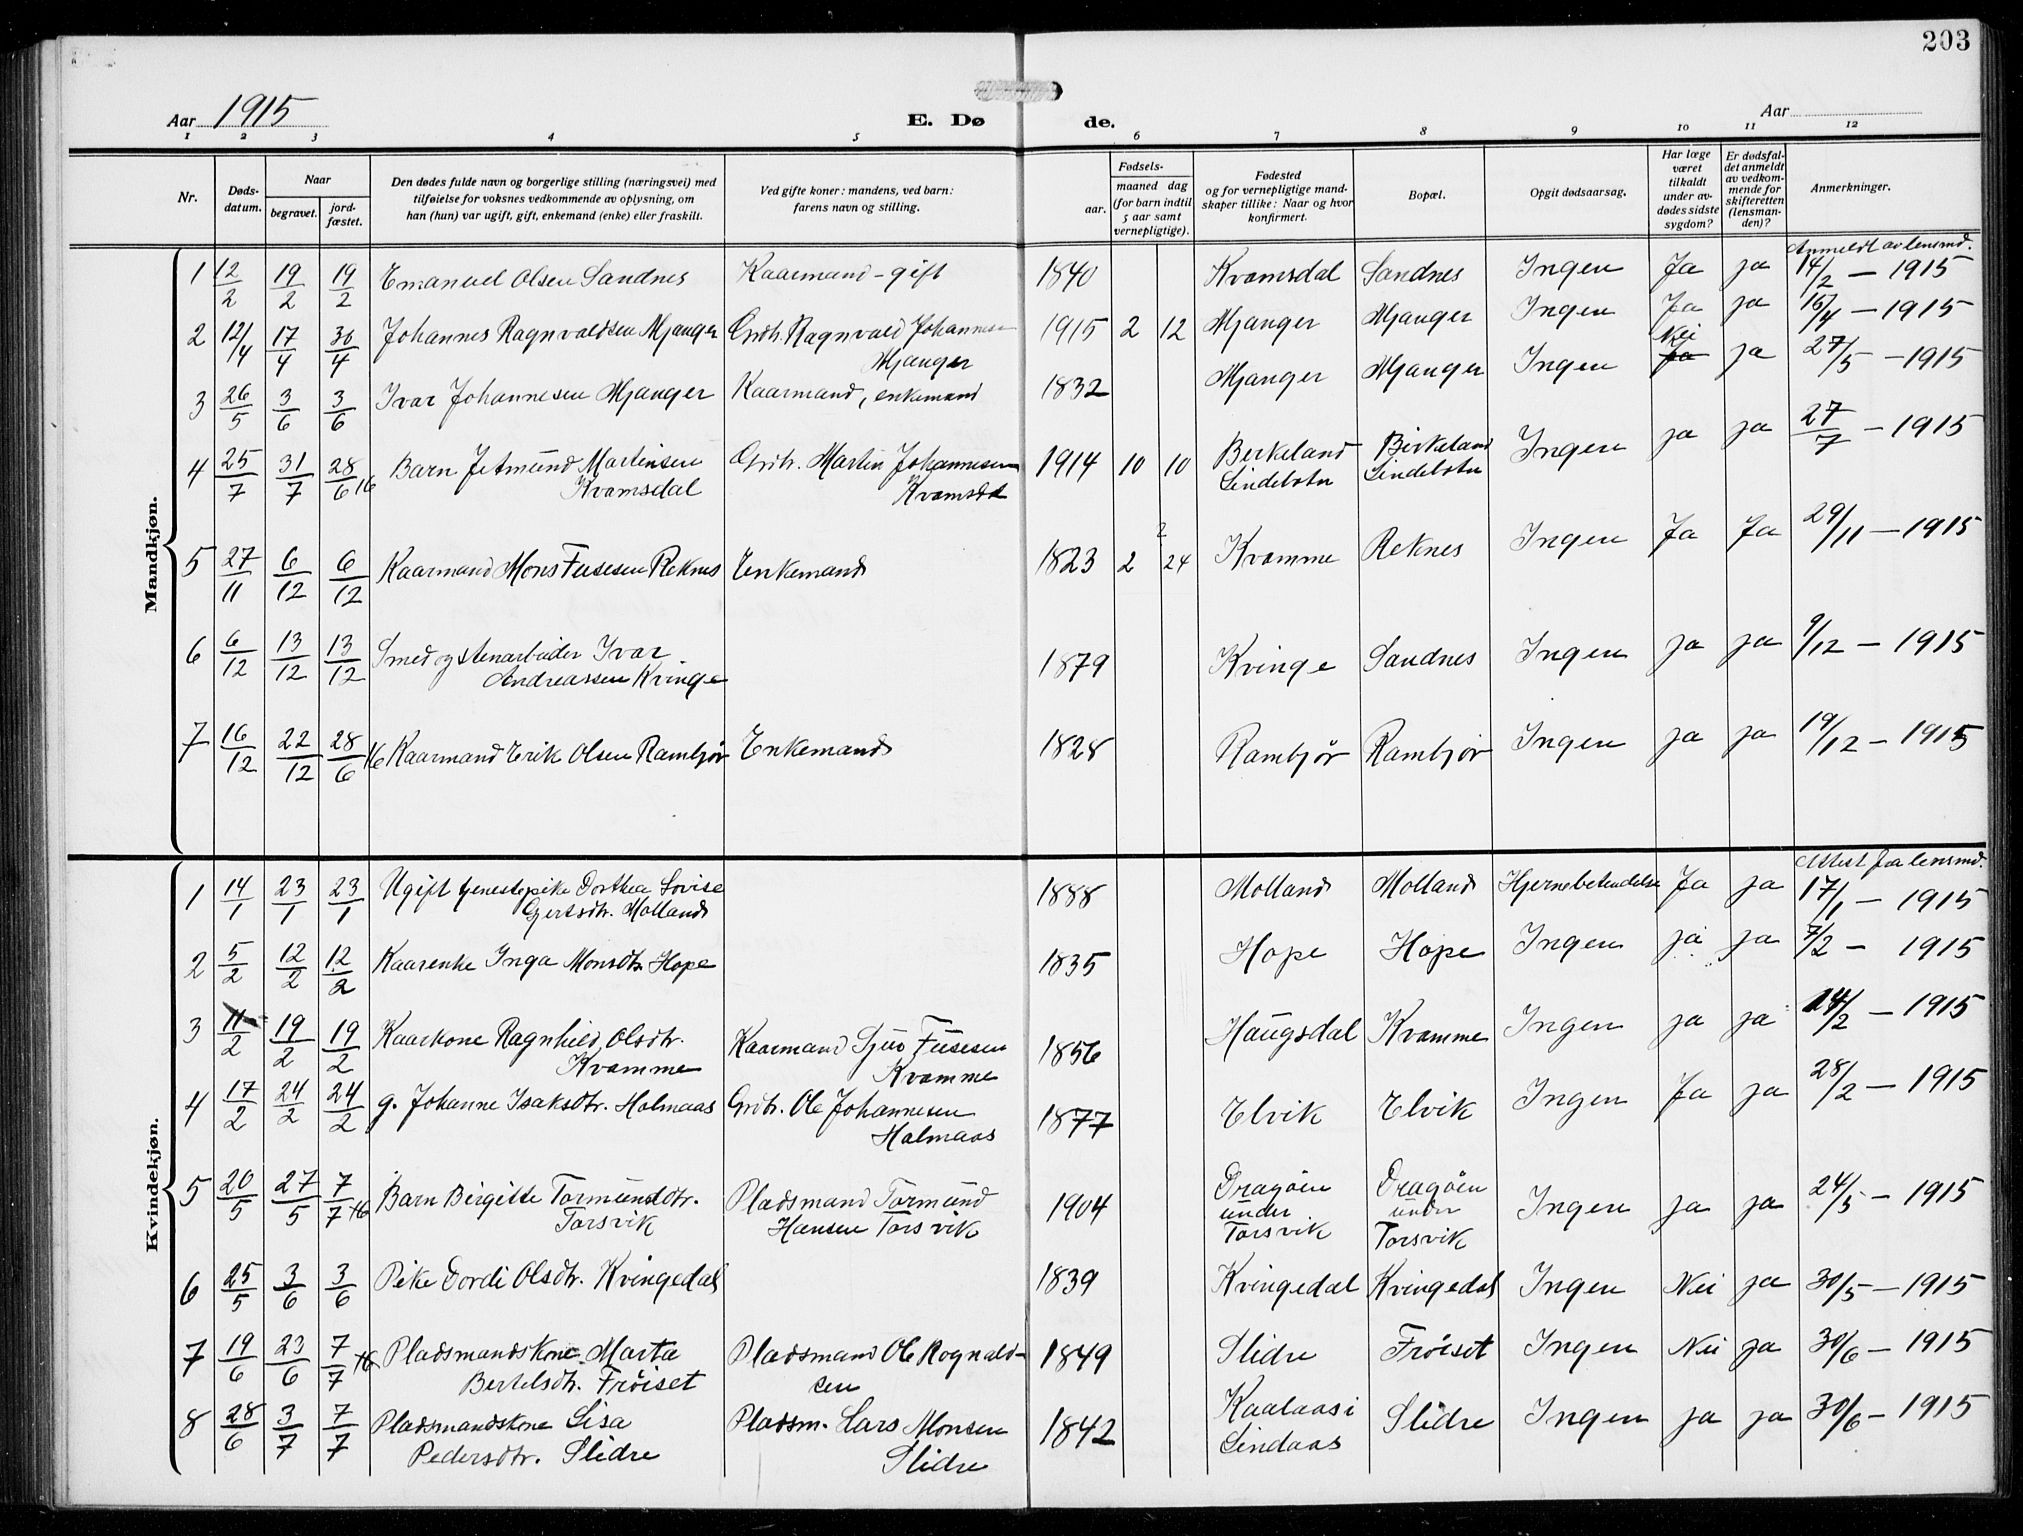 203
Aar 1915
E. Dø de.
Aar
1 2 3 4 5 6 7 8 9 10 11 12
Nr.
Døds-
datum.
Naar
begravet.
jord-
fæstet.
Den dødes fulde navn og borgerlige stilling (næringsvei) med
tilføielse for voksnes vedkommende av oplysning, om
han (hun) var ugift, gift, enkemand (enke) eller fraskilt.
Ved gifte koner: mandens, ved barn:
farens navn og stilling.
Fødsels-
aar.
maaned dag
(for barn indtil
5 aar samt
vernepligtige).
Fødested
og for vernepligtige mand-
skaper tillike: Naar og hvor
konfirmert.
Bopæl.
Opgit dødsaarsag.
Har læge
været
tilkaldt
under av-
dødes sidste
sygdom?
Er dødsfal-
det anmeldt
av vedkom-
mende for
skifteretten
(lensman-
den)?
Anmerkninger.
Mandkjøn.
Anmeldt av lensmd.
1 12/2 19/2 19/2 Emanuel Olsen Sandnes Kaarmand - gift 1840 Kvamsdal Sandnes Ingen Ja ja 14/2 - 1915
2 12/4 17/4 30/4 Johannes Ragnvaldsen Mjanger Grdbr. Ragnvald Johannesen 1915 2 12 Mjanger Mjanger Ingen Ja ja 15/4 - 1915
Mjanger
Nei
3 26/5 3/6 3/6 Ivar Johannesen Mjanger Kaarmand, enkemand 1832 Mjanger Mjanger Ingen Ja ja 27/5 - 1915
4 25/7 31/7 28/6 16 Barn Jetmund Martinsen Grdbr. Martin Johannesen 1914 10 10 Berkeland Birkeland Ingen ja ja 27/7 - 1915
Kvamsdal Kvamsdal Lindebotn Lindebotn
2
5 27/11 6/12 6/12 Kaarmand Mons Fusesen Reknes Enkemand 1823 2 24 Kvamme Reknes Ingen Ja Ja 29/11 - 1915
6 6/12 13/12 13/12 Smed og stenarbeider Ivar 1879 Kvinge Sandnes Ingen ja ja 9/12 - 1915
Andreassen Kvinge
7 16/12 22/12 28/6 16 Kaarmand Erik Olsen Rambjør Enkemand 1828 Rambjør Rambjør Ingen ja ja 19/12 - 1915
Kvindekjøn.
Attest fra lensmd.
1 14/1 23/1 23/1 Ugift tjenestepike Dorthea Lovise 1888 Molland Molland Hjernebetendelse Ja ja 17/1 - 1915
Gjertsdtr. Molland
2 5/2 12/2 12/2 Kaarenke Inga Monsdtr. Hope 1835 Hope Hope Ingen ja ja 7/2 - 1915
3 11/2 19/2 19/2 Kaarkone Ragnhild Olsdtr. Kaarmand Sjur Fusesen 1856 Haugsdal Kvamme Ingen ja ja 14/2 - 1915
Kvamme Kvamme
4 17/2 24/2 24/2 g. Johanne Isaksdtr. Holmaas Grdbr. Ole Johannesen 1877 Elvik Elvik Ingen Ja ja 28/2 - 1915
Holmaas
5 20/5 27/5 7/7 16 Barn Birgitte Tormundsdtr. Pladsmand Tormund 1904 Dragøen Dragøen Ingen ja ja 24/5 - 1915
Torsvik Hansen Torsvik under under
Torsvik Torsvik
6 25/5 3/6 3/6 Pike Dordi Olsdtr. Kvingedal 1839 Kvingedal Kvingedal Ingen Nei ja 30/5 - 1915
7 19/6 23/6 7/7 16 Pladsmandskone Marta Pladsmand Ole Rognald- 1849 Slidre Frøiset Ingen Nei ja 30/6 - 1915
Bertelsdtr. Frøiset sen
8 28/6 3/7 7/7 Pladsmandskone Lisa Pladsm. Lars Monsen 1842 Kaalaas i Slidre Ingen ja ja 30/6 - 1915
Pedersdtr. Slidre Slidre Lindaas